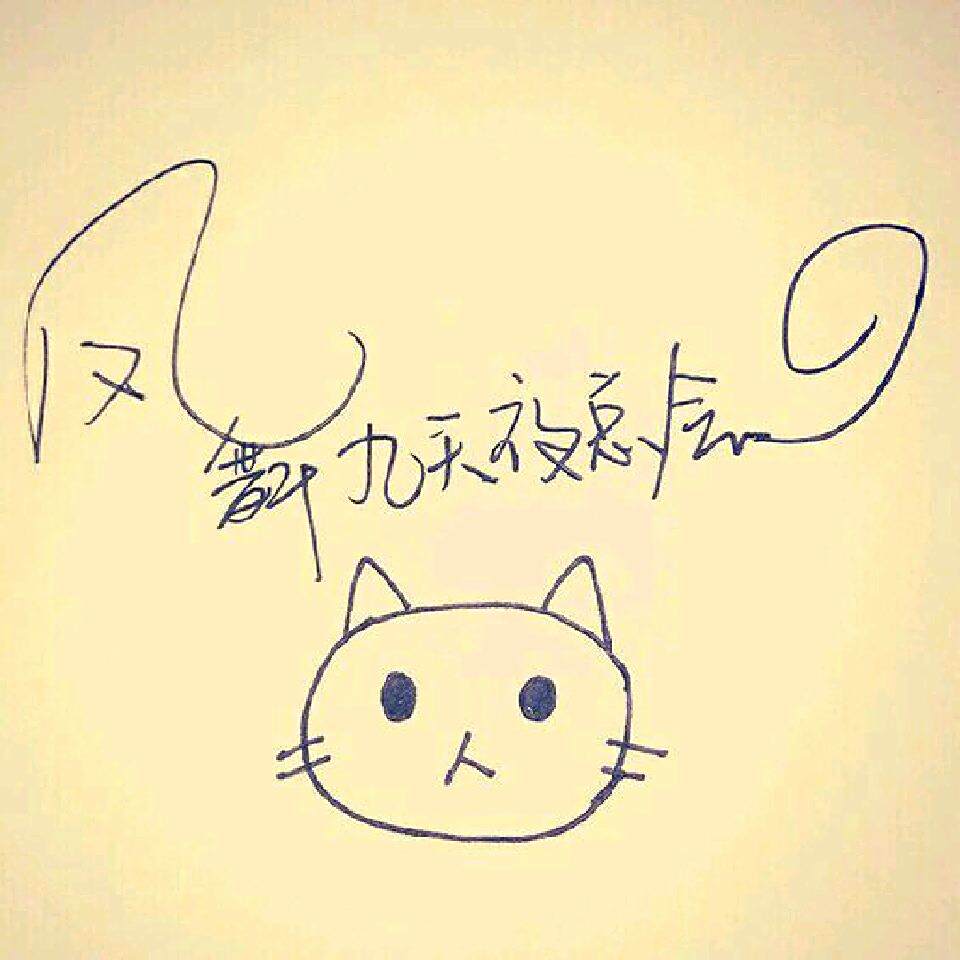 凤舞九天夜总会